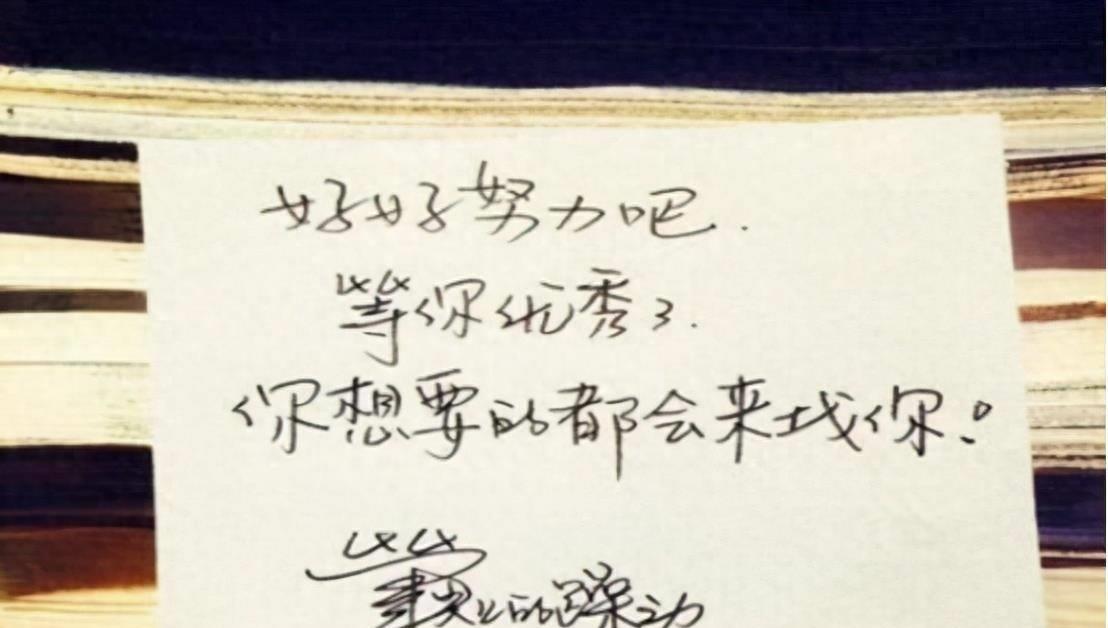 好好努力吧.
等你优秀了.
你想要的都会来找你!
的躁动